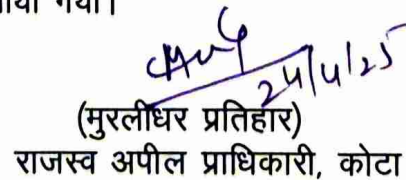 गया।
24/4/25
(मुरलीधर प्रतिहार)
राजस्व अपील प्राधिकारी, कोटा